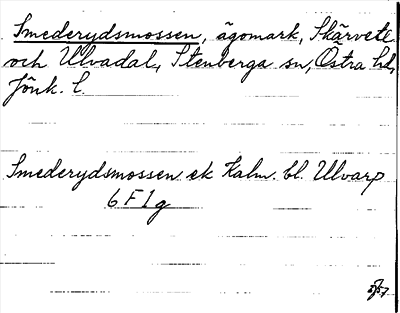 Smederydsmossen, ägomark, Skärvete
och Ulvadal, Stenberga sn, Östra hd,
Jönk. l.
Smederydsmossen ek Kalm. bl. Ulvarp
6 F 1 g